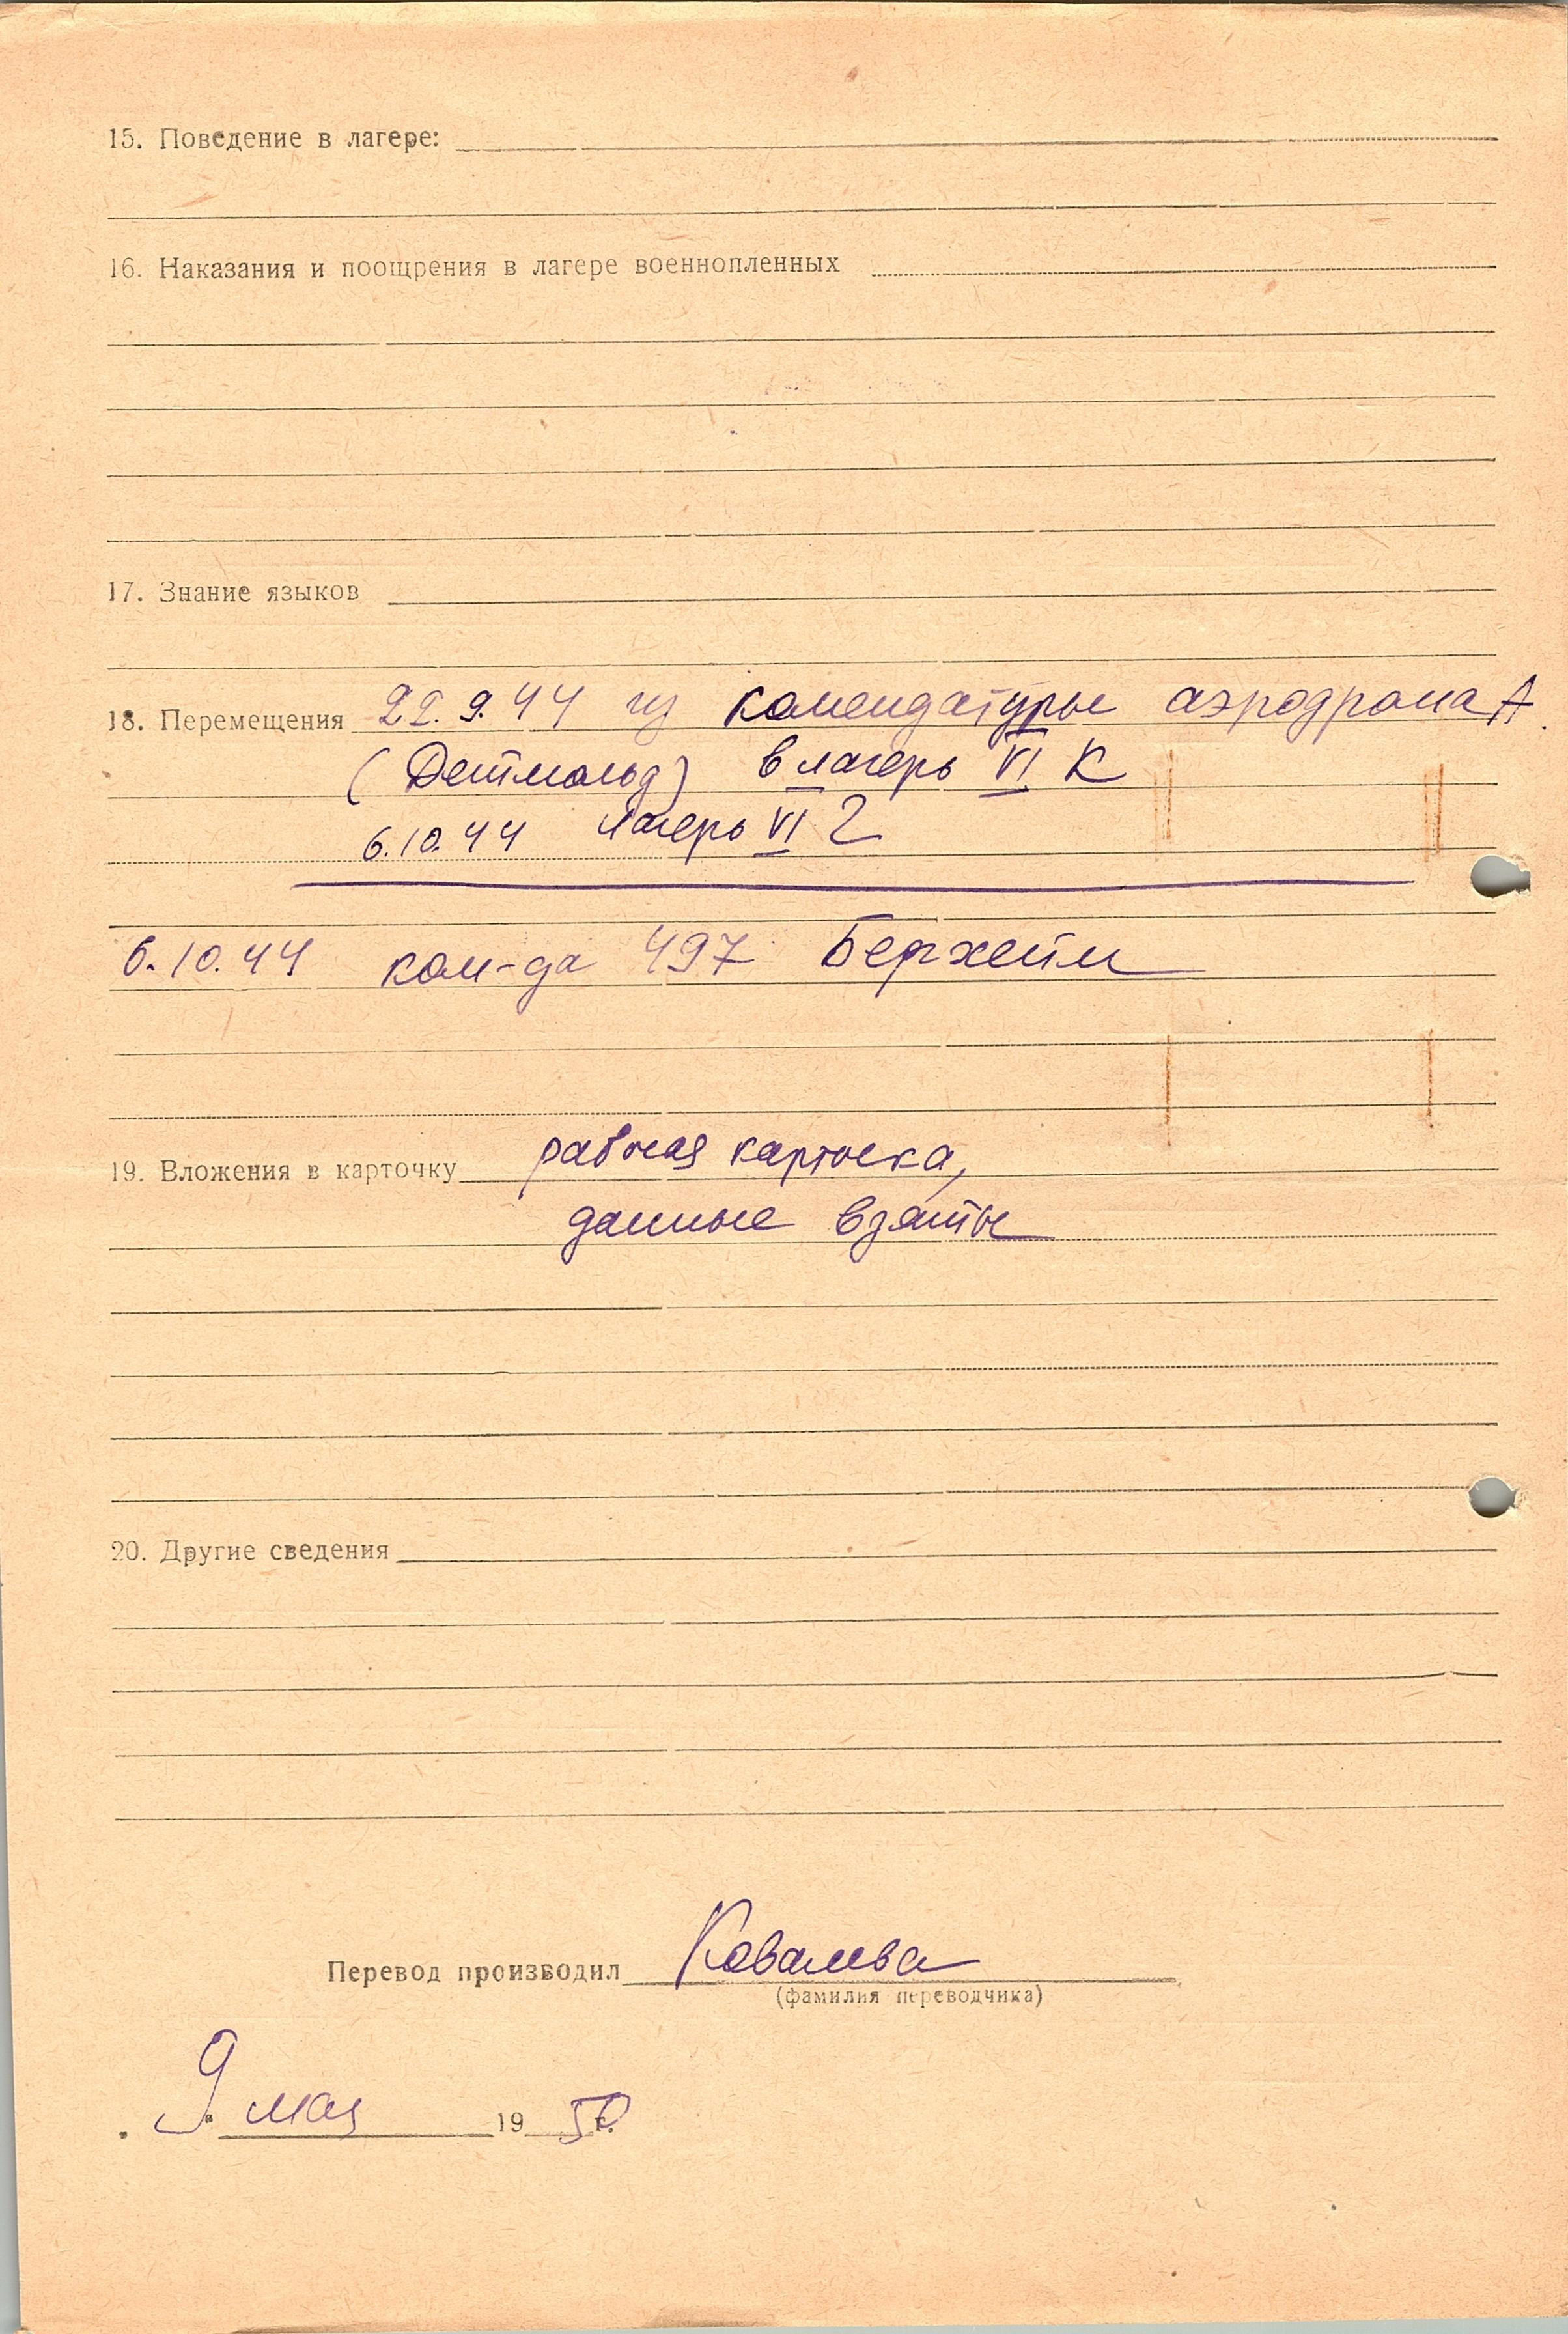 15. Поведение в лагере:
16. Наказания и поощрения в лагере военнопленных
17. Знание языков
18. Перемещения 22.9.44 из комендатуры аэродрома А
(Детмольд) в лагерь VI К
6.10.44 лагерь VI
6.10.44 ком-да 497 Берхейм
19. Вложения в карточку рабочая карточка,
данные взяты
20. Другие сведения
Перевод производил Ковалева
(фамилия переводчика)
9 мая 1950 г.